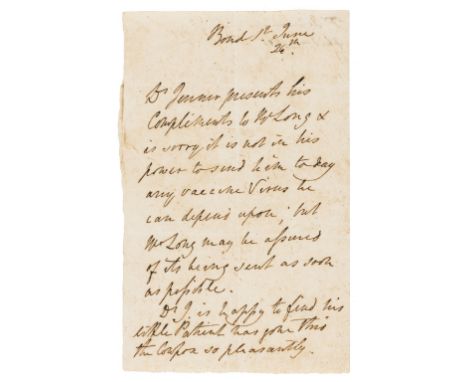 Bond St. June
26th.
Dr. Jenner presents his
Compliments to Mr Long &
is sorry it is not in his
power to send him to day
any vaccine Virus he
can depend upon; but
Mr Long may be assured
of its being sent as soon
as possible.
Dr J. is happy to find his
little Patient has gone thro'
the Cowpox so pleasantly.